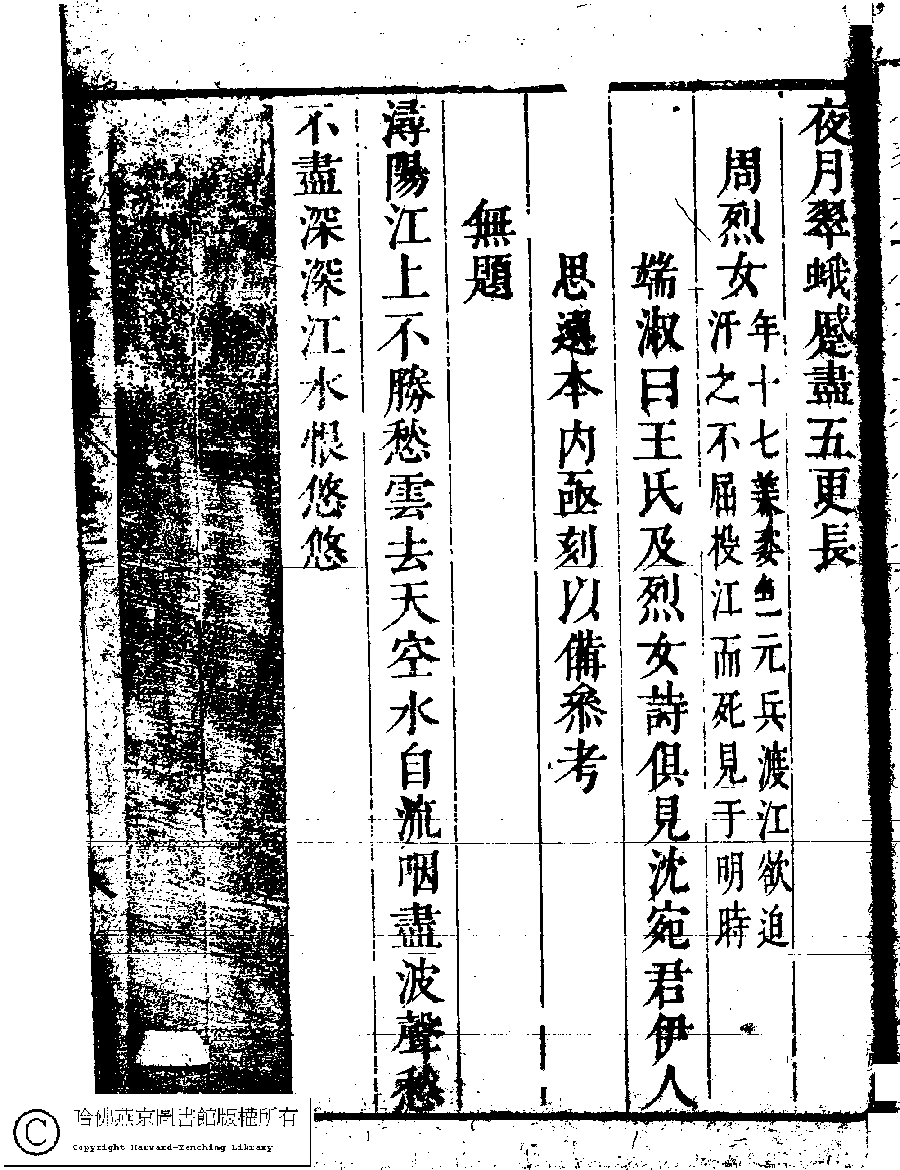 夜月翠蛾蹙盡五更長
周烈女
年十七美姿色元兵渡江欲迫
汗之不屈投江而死見于明時
端淑曰王氏及烈女詩俱見沈宛君伊人
思選本内亟刻以備叅考
無題
潯陽江上不勝愁雲去天空水自流咽盡波聲愁
不盡深深江水恨悠悠
哈佛燕京圖書館版權所有
Copyright Harvard-Yenching Library